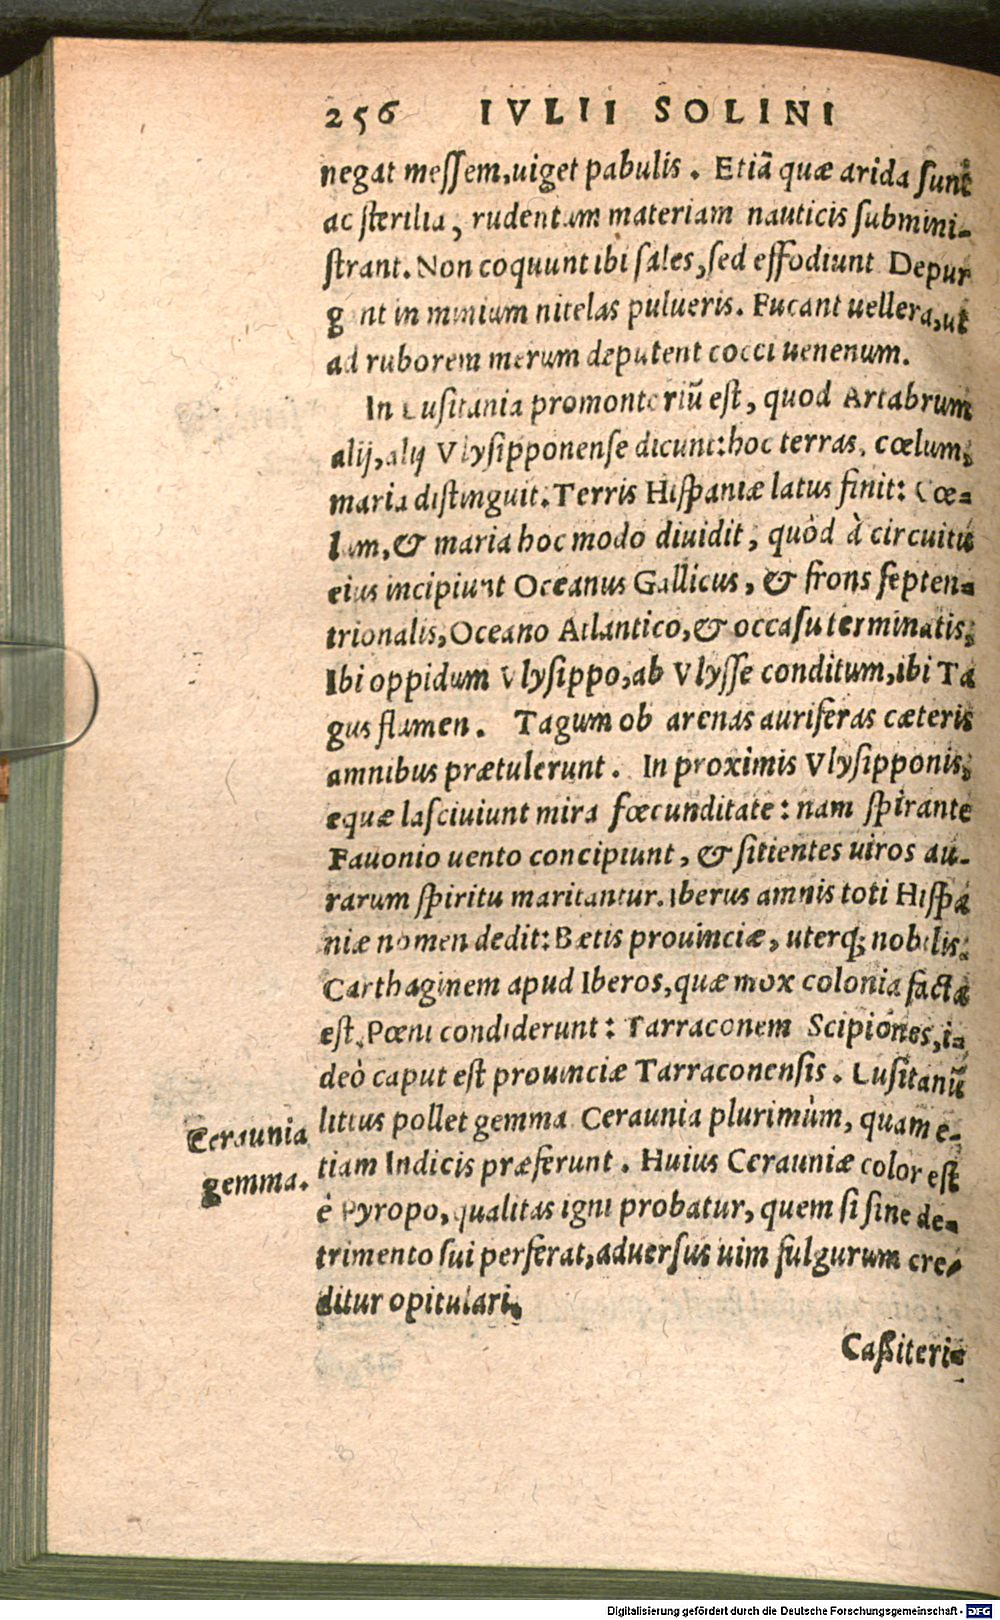 256 IVLII SOLINI
negat messem, uiget pabulis. Etiã quæ arida sunt
ac sterilia, rudentum materiam nauticis submini-
strant. Non coquunt ibi sales, sed effodiunt Depur
gant in minium nitelas pulueris. Fucant uellera, ut
ad ruborem merum deputent cocci uenenum.
In Lusitania promontoriũ est, quod Artabrum
alij, alij Vlysipponense dicunt: hoc terras, cœlum,
maria distinguit. Terris Hispaniæ latus finit: Cœ-
lum, & maria hoc modo diuidit, quòd à circuitu
eius incipiunt Oceanus Gallicus, & frons septen-
trionalis, Oceano Atlantico, & occasu terminatis.
Ibi oppidum Vlysippo, ab Vlysse conditum, ibi Ta
gus flumen. Tagum ob arenas auriferas cæteris
amnibus prætulerunt. In proximis Vlysipponis,
equæ lasciuiunt mira fœcunditate: nam spirante
Fauonio uento concipiunt, & sitientes uiros au-
rarum spiritu maritantur. Iberus amnis toti Hispa
niæ nomen dedit: Bætis prouinciæ, uterq; nobilis.
Carthaginem apud Iberos, quæ mox colonia facta
est, Pœni condiderunt: Tarraconem Scipiones, i-
deò caput est prouinciæ Tarraconensis. Lusitanũ
littus pollet gemma Ceraunia plurimùm, quam e-
tiam Indicis præferunt. Huius Cerauniæ color est
è Pyropo, qualitas igni probatur, quem si sine de-
trimento sui perferat, aduersus uim fulgurum cre-
ditur opitulari.
Ceraunia
gemma.
Caßiteri-
Digitalisierung gefördert durch die Deutsche Forschungsgemeinschaft - DFG